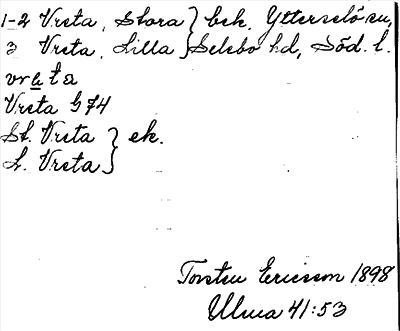 1-2 Vreta, Stora } bek. Ytterselö sn,
3 Vreta, Lilla } Selebo hd, Söd. l.
vreta
Vreta G 74
St. Vreta } ek.
L. Vreta }
Torsten Ericsson 1898
Ulma 41:53